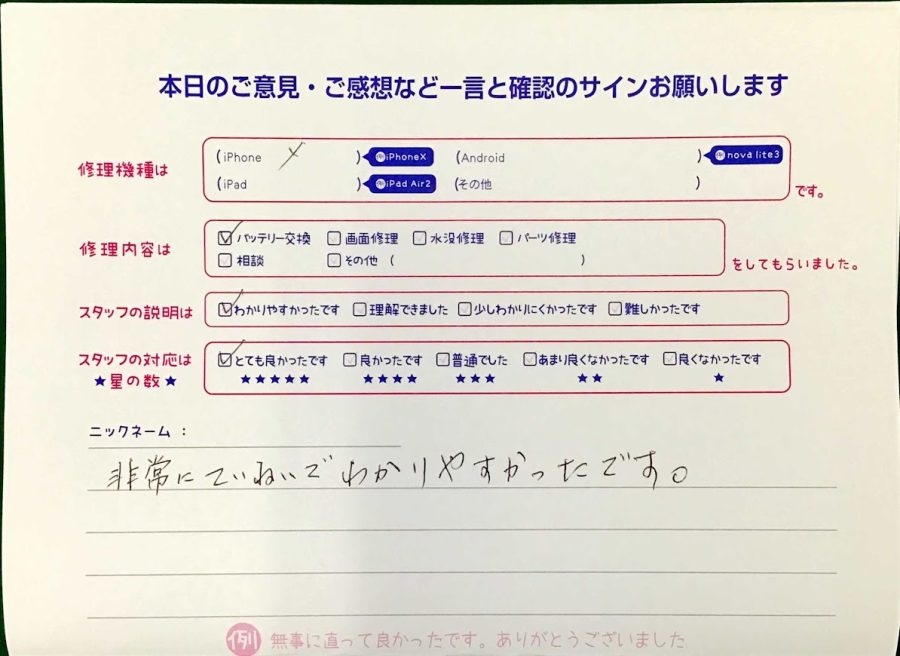 本日のご意見・ご感想など一言と確認のサインお願いします
修理機種は
(iPhone X ) 例iPhoneX (Android ) 例nova lite3
(iPad ) 例iPad Air2 (その他 )
です。
修理内容は
☑バッテリー交換 □画面修理 □水没修理 □パーツ修理
□相談 □その他 ( )
をしてもらいました。
スタッフの説明は
☑わかりやすかったです □理解できました □少しわかりにくかったです □難しかったです
スタッフの対応は
★星の数★
☑とても良かったです □良かったです □普通でした □あまり良くなかったです □良くなかったです
★★★★★ ★★★★ ★★★ ★★ ★
ニックネーム：
非常にていねいでわかりやすかったです。
例 無事に直って良かったです。ありがとうございました